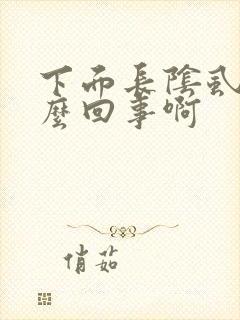 下面長陰虱
麼回事啊
俏茹